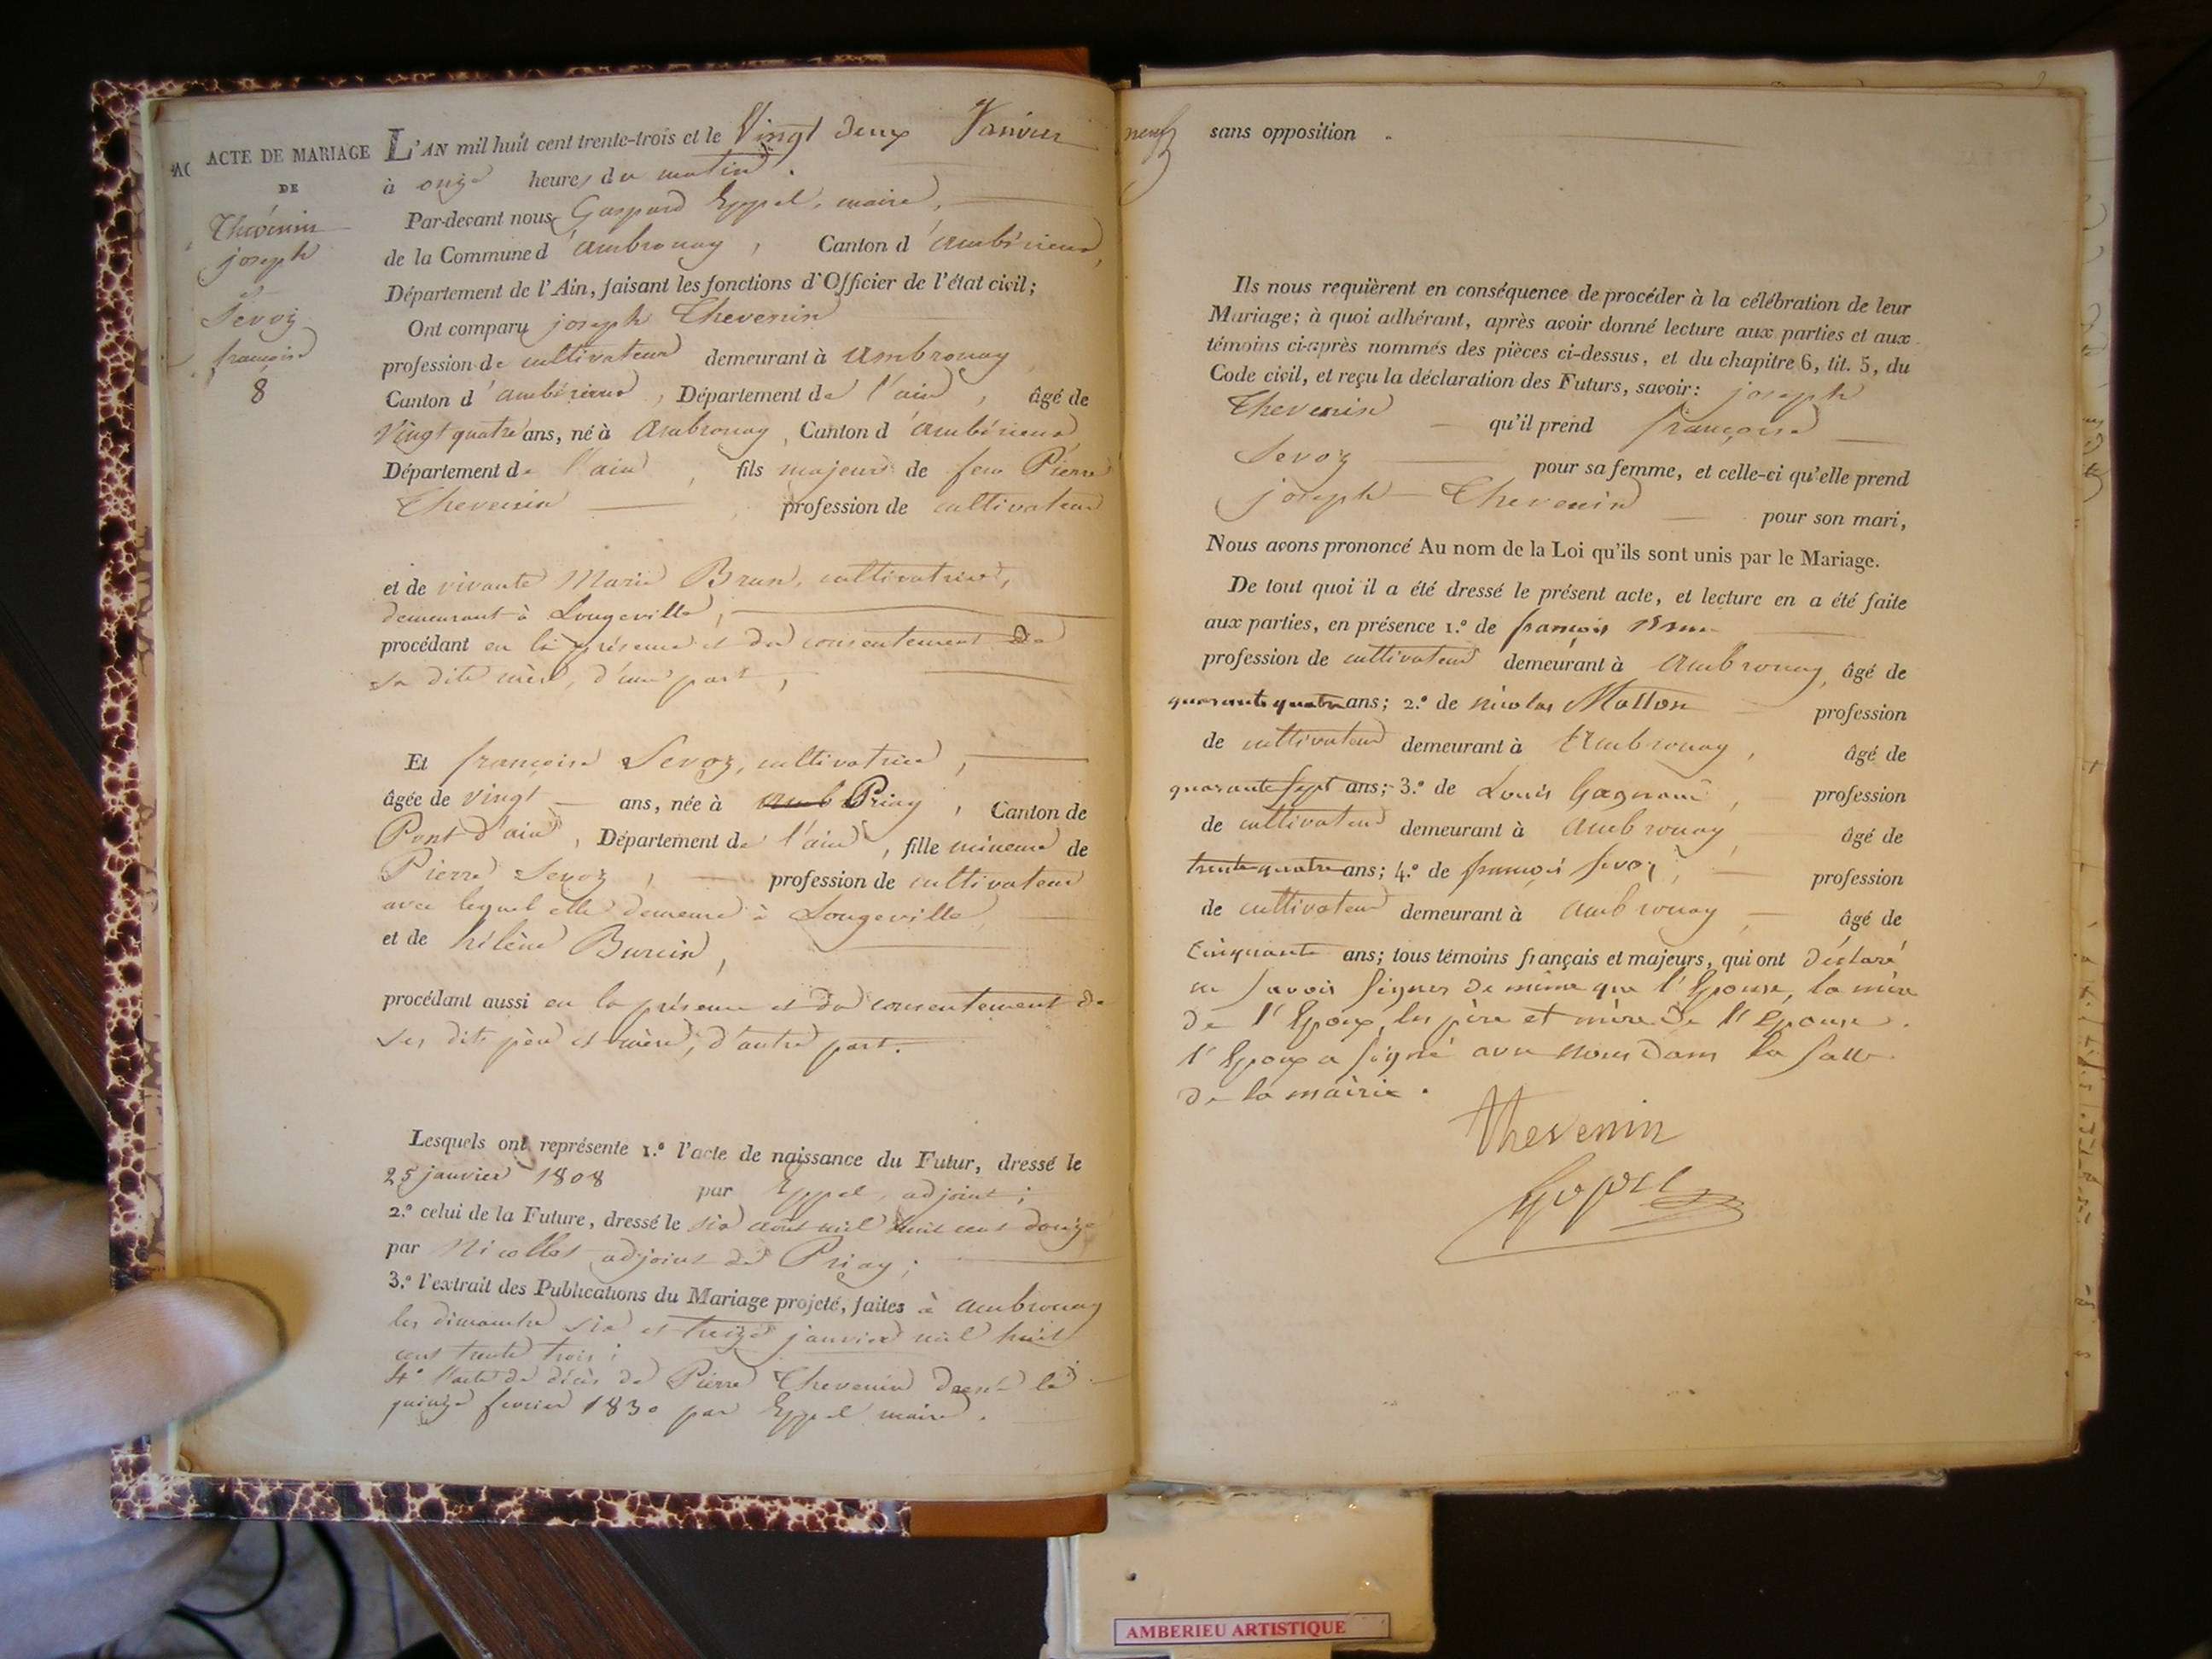 ACTE DE MARIAGE
DE
Thévenin
joseph
et
Sevoz
françoise
8
L'AN mil huit cent trente-trois et le Vingt deux Janvier
à onze heures du matin.
Par-devant nous Gaspard Eppel, maire,
de la Commune d'ambronay, Canton d'ambérieux,
Département de l'Ain, faisant les fonctions d'Officier de l'état civil;
Ont comparu joseph Thevenin
profession de cultivateur demeurant à ambronay
Canton d'ambérieux, Département de l'ain, âgé de
Vingt quatre ans, né à Ambronay, Canton d'ambérieux
Département de l'ain, fils majeur de feu Pierre
Thevenin profession de cultivateur
et de vivante Marie Brun, cultivatrice,
demeurant à Longeville,
procédant en la présence et du consentement de
sa dite mère, d'une part,
Et françoise Sevoz, cultivatrice,
âgée de vingt ans, née à amb Priay, Canton de
Pont d'ain, Département de l'ain, fille mineure de
Pierre Sevoz, profession de cultivateur
avec lequel elle demeure à Longeville
et de hélène Burcin,
procédant aussi en la présence et du consentement de
ses dits père et mère, d'autre part.
Lesquels ont représente 1.º l'acte de naissance du Futur, dressé le
25 janvier 1808 par Eppel, adjoint;
2.º celui de la Future, dressé le six août mil huit cent douze
par Nicollet adjoint de Priay;
3.º l'extrait des Publications du Mariage projeté, faites à ambronay
les dimanche six et treize janvier mil huit
cent trente trois;
4º l'acte de décès de Pierre Thevenin dressé le
quinze fevrier 1830 par Eppel maire.
sans opposition.
Ils nous requièrent en conséquence de procéder à la célébration de leur
Mariage; à quoi adhérant, après avoir donné lecture aux parties et aux
témoins ci-après nommés des pièces ci-dessus, et du chapitre 6, tit. 5, du
Code civil, et reçu la déclaration des Futurs, savoir: joseph
Thevenin qu'il prend françoise
Sevoz pour sa femme, et celle-ci qu'elle prend
joseph Thevenin pour son mari,
Nous avons prononcé Au nom de la Loi qu'ils sont unis par le Mariage.
De tout quoi il a été dressé le présent acte, et lecture en a été faite
aux parties, en présence 1.º de françois Brun
profession de cultivateur demeurant à Ambronay, âgé de
quarante quatre ans; 2.º de nicolas Mollon profession
de cultivateur demeurant à Ambronay, âgé de
quarante sept ans; 3.º de Louis Gagneau, profession
de cultivateur demeurant à Ambronay, âgé de
trente quatre ans; 4.º de françois Sevoz, profession
de cultivateur demeurant à Ambronay, âgé de
Cinquante ans; tous témoins français et majeurs, qui ont déclaré
ne savoir signer de même que l'Epouse, la mère
de l'Epoux, les père et mère de l'Epouse.
l'Epoux a signé avec nous dans la salle
de la mairie.
Thevenin
Eppel
AMBERIEU ARTISTIQUE